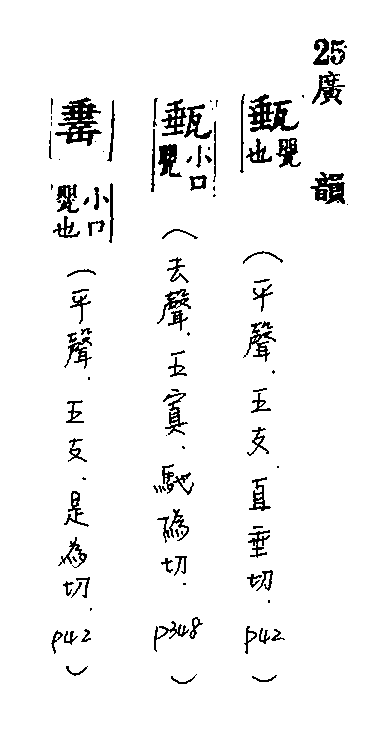 25廣韻
甀甖也（平聲．五支．直垂切．p42）
甀小口甖（去聲．五寘．馳僞切．p348）
小口甖也（平聲．五支．是為切．p42）